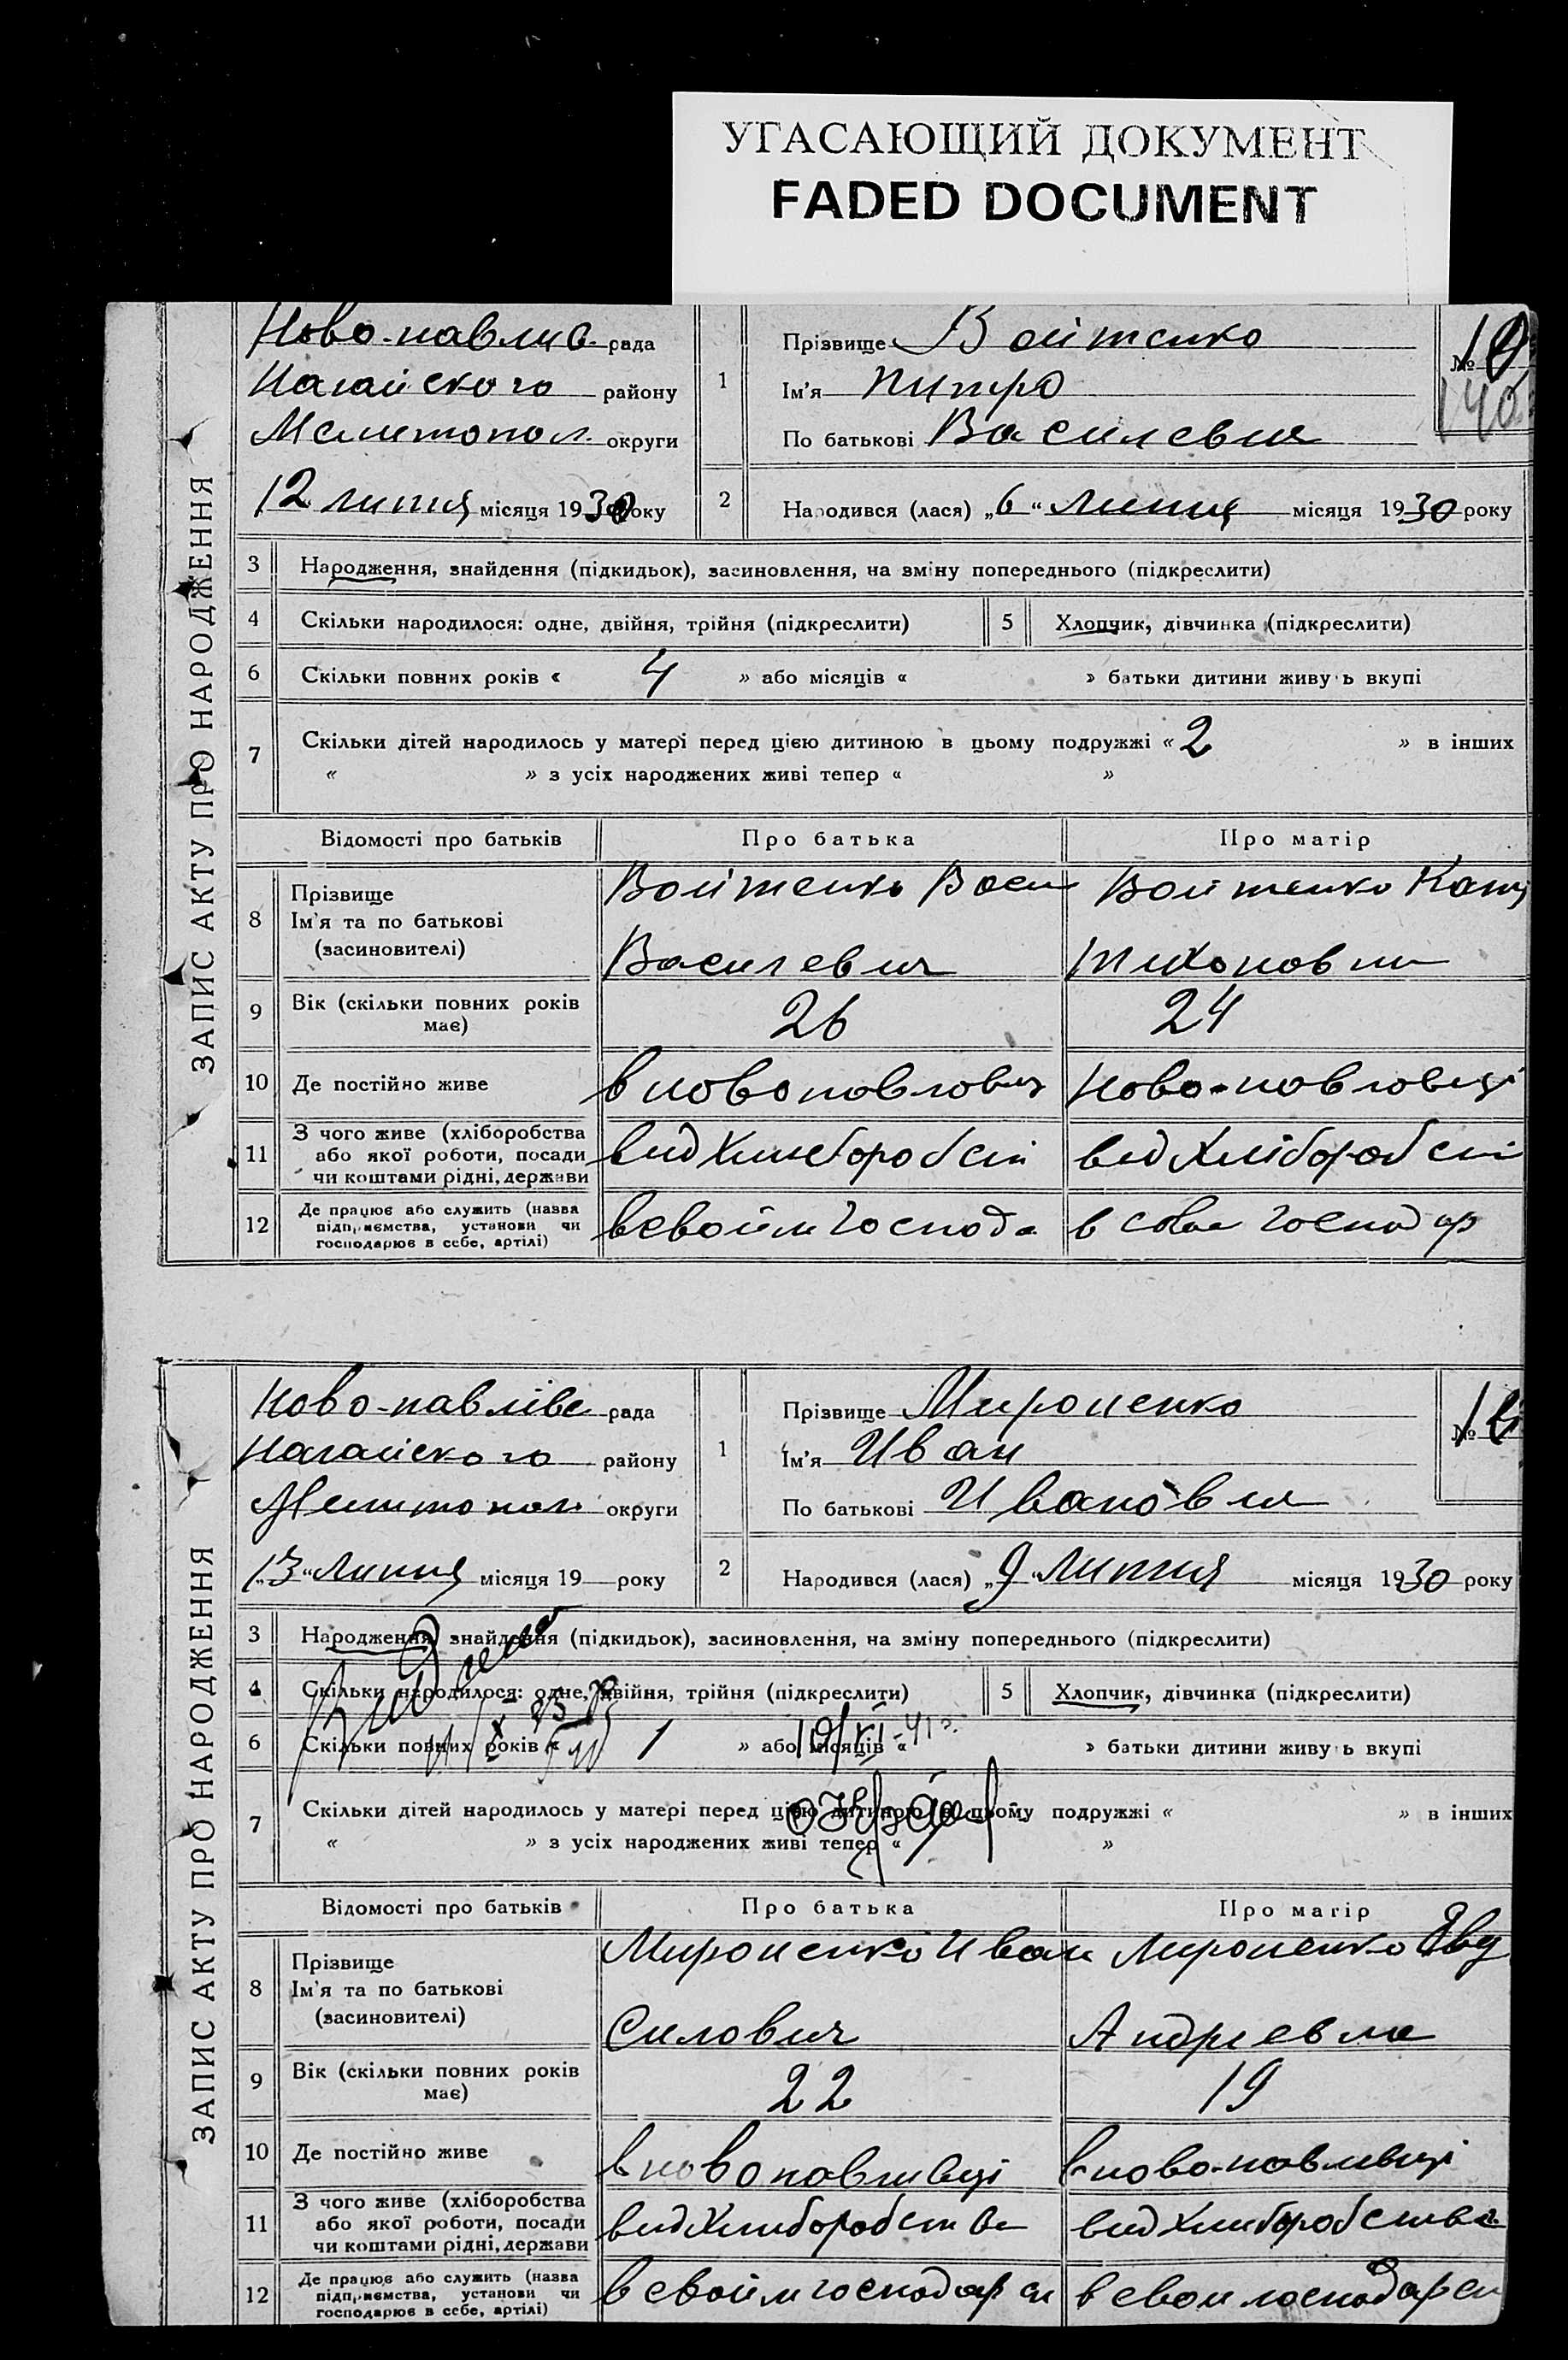 УГАСАЮЩИЙ ДОКУМЕНТ
FADED DOCUMENT
ЗАПИС АКТУ ПРО НАРОДЖЕННЯ
Ново-павлив. рада
Нагайского району
Мелитопол. округи
12 липня місяця 1930 року
1
Прізвище Войтенко
Ім'я Питро
По батькові Василевич
№ 10
140
2
Народився (лася) „6“ Липня місяця 1930 року
3 Народження, знайдення (підкидьок), засиновлення, на зміну попереднього (підкреслити)
4 Скільки народилося: одне, двійня, трійня (підкреслити) 5 Хлопчик, дівчинка (підкреслити)
6 Скільки повних років « 4 » або місяців « » батьки дитини живуть вкупі
7 Скільки дітей народилось у матері перед цією дитиною в цьому подружжі « 2 » в інших
« » з усіх народжених живі тепер « »
Відомості про батьків Про батька Про матір
8 Прізвище
Ім'я та по батькові
(засиновителі)
Войтенко Васи
Василевич
Войтенко Катя
Тихоновни
9 Вік (скільки повних років
має)
26 24
10 Де постійно живе в новопавловци Ново-павловці
11 З чого живе (хліборобства
або якої роботи, посади
чи коштами рідні, держави
вид Хлиборобст вид Хліборобст
12 Де працює або служить (назва
підприємства, установи чи
господарює в себе, артілі)
в своїм господа в свое господар
ЗАПИС АКТУ ПРО НАРОДЖЕННЯ
Ново-павлівс рада
Нагайского району
Мелитопол. округи
„13“ Липня місяця 19 року
1
Прізвище Мироненко
Ім'я Иван
По батькові Иванович
№
2
Народився (лася) „9“ Липня місяця 1930 року
3 Народження, знайдення (підкидьок), засиновлення, на зміну попереднього (підкреслити)
4 Скільки народилося: одне, двійня, трійня (підкреслити) 5 Хлопчик, дівчинка (підкреслити)
6 Скільки повних років « 1 » або місяців « » батьки дитини живуть вкупі
19/VI-41 г.
7 Скільки дітей народилось у матері перед цією дитиною в цьому подружжі « » в інших
« » з усіх народжених живі тепер « »
Відомості про батьків Про батька Про матір
8 Прізвище
Ім'я та по батькові
(засиновителі)
Мироненко Иван
Силович
Мироненко Явд
Андриевна
9 Вік (скільки повних років
має)
22 19
10 Де постійно живе в новопавливці в ново-павливці
11 З чого живе (хліборобства
або якої роботи, посади
чи коштами рідні, держави
вид Хлиборобства вид Хлиборобства
12 Де працює або служить (назва
підприємства, установи чи
господарює в себе, артілі)
в своїм господарси в свои господарси